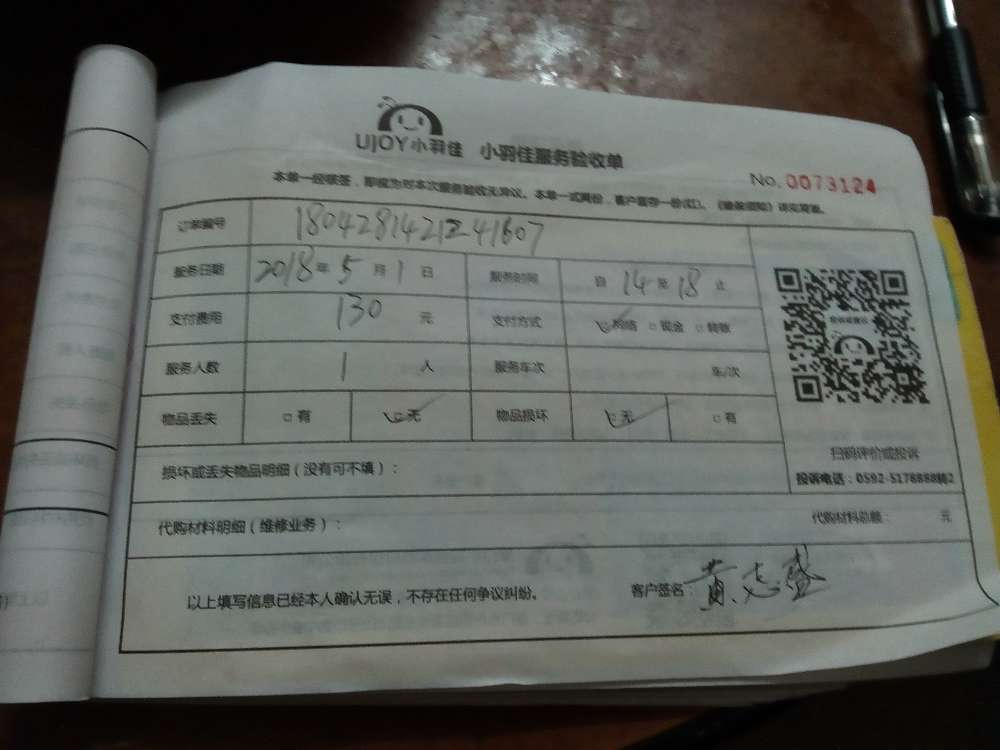 UJOY小羽佳 小羽佳服务验收单
No. 0073124
本单一经填签，即视为对本次服务验收无异议。本单一式两份，客户留存一份(红)。
订单编号 1804281421241607
服务日期 2018年5月1日 服务时间 自14至18止
支付费用 130元 支付方式 ☑网络 □现金 □转账
服务人数 1人 服务车次 车/次
物品丢失 □有 ☑无 物品损坏 ☑无 □有
扫码评价或投诉
投诉电话：0592-5178888转2
损坏或丢失物品明细（没有可不填）：
代购材料明细（维修业务）： 代购材料总额： 元
以上填写信息已经本人确认无误，不存在任何争议纠纷。 客户签名：黄志盛